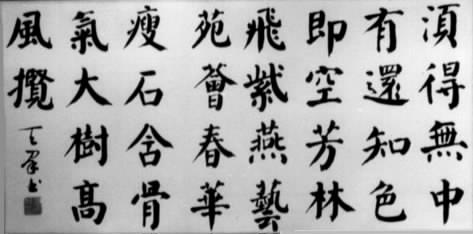 湏得無中
有還知色
即空芳林
飛紫燕藝
苑薈春華
瘦石含骨
氣大樹髙
風攬